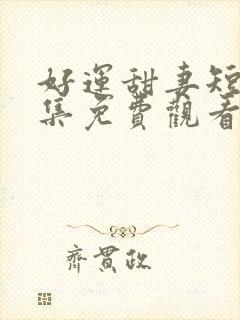 好運甜妻短
集免費觀看
齊貫政